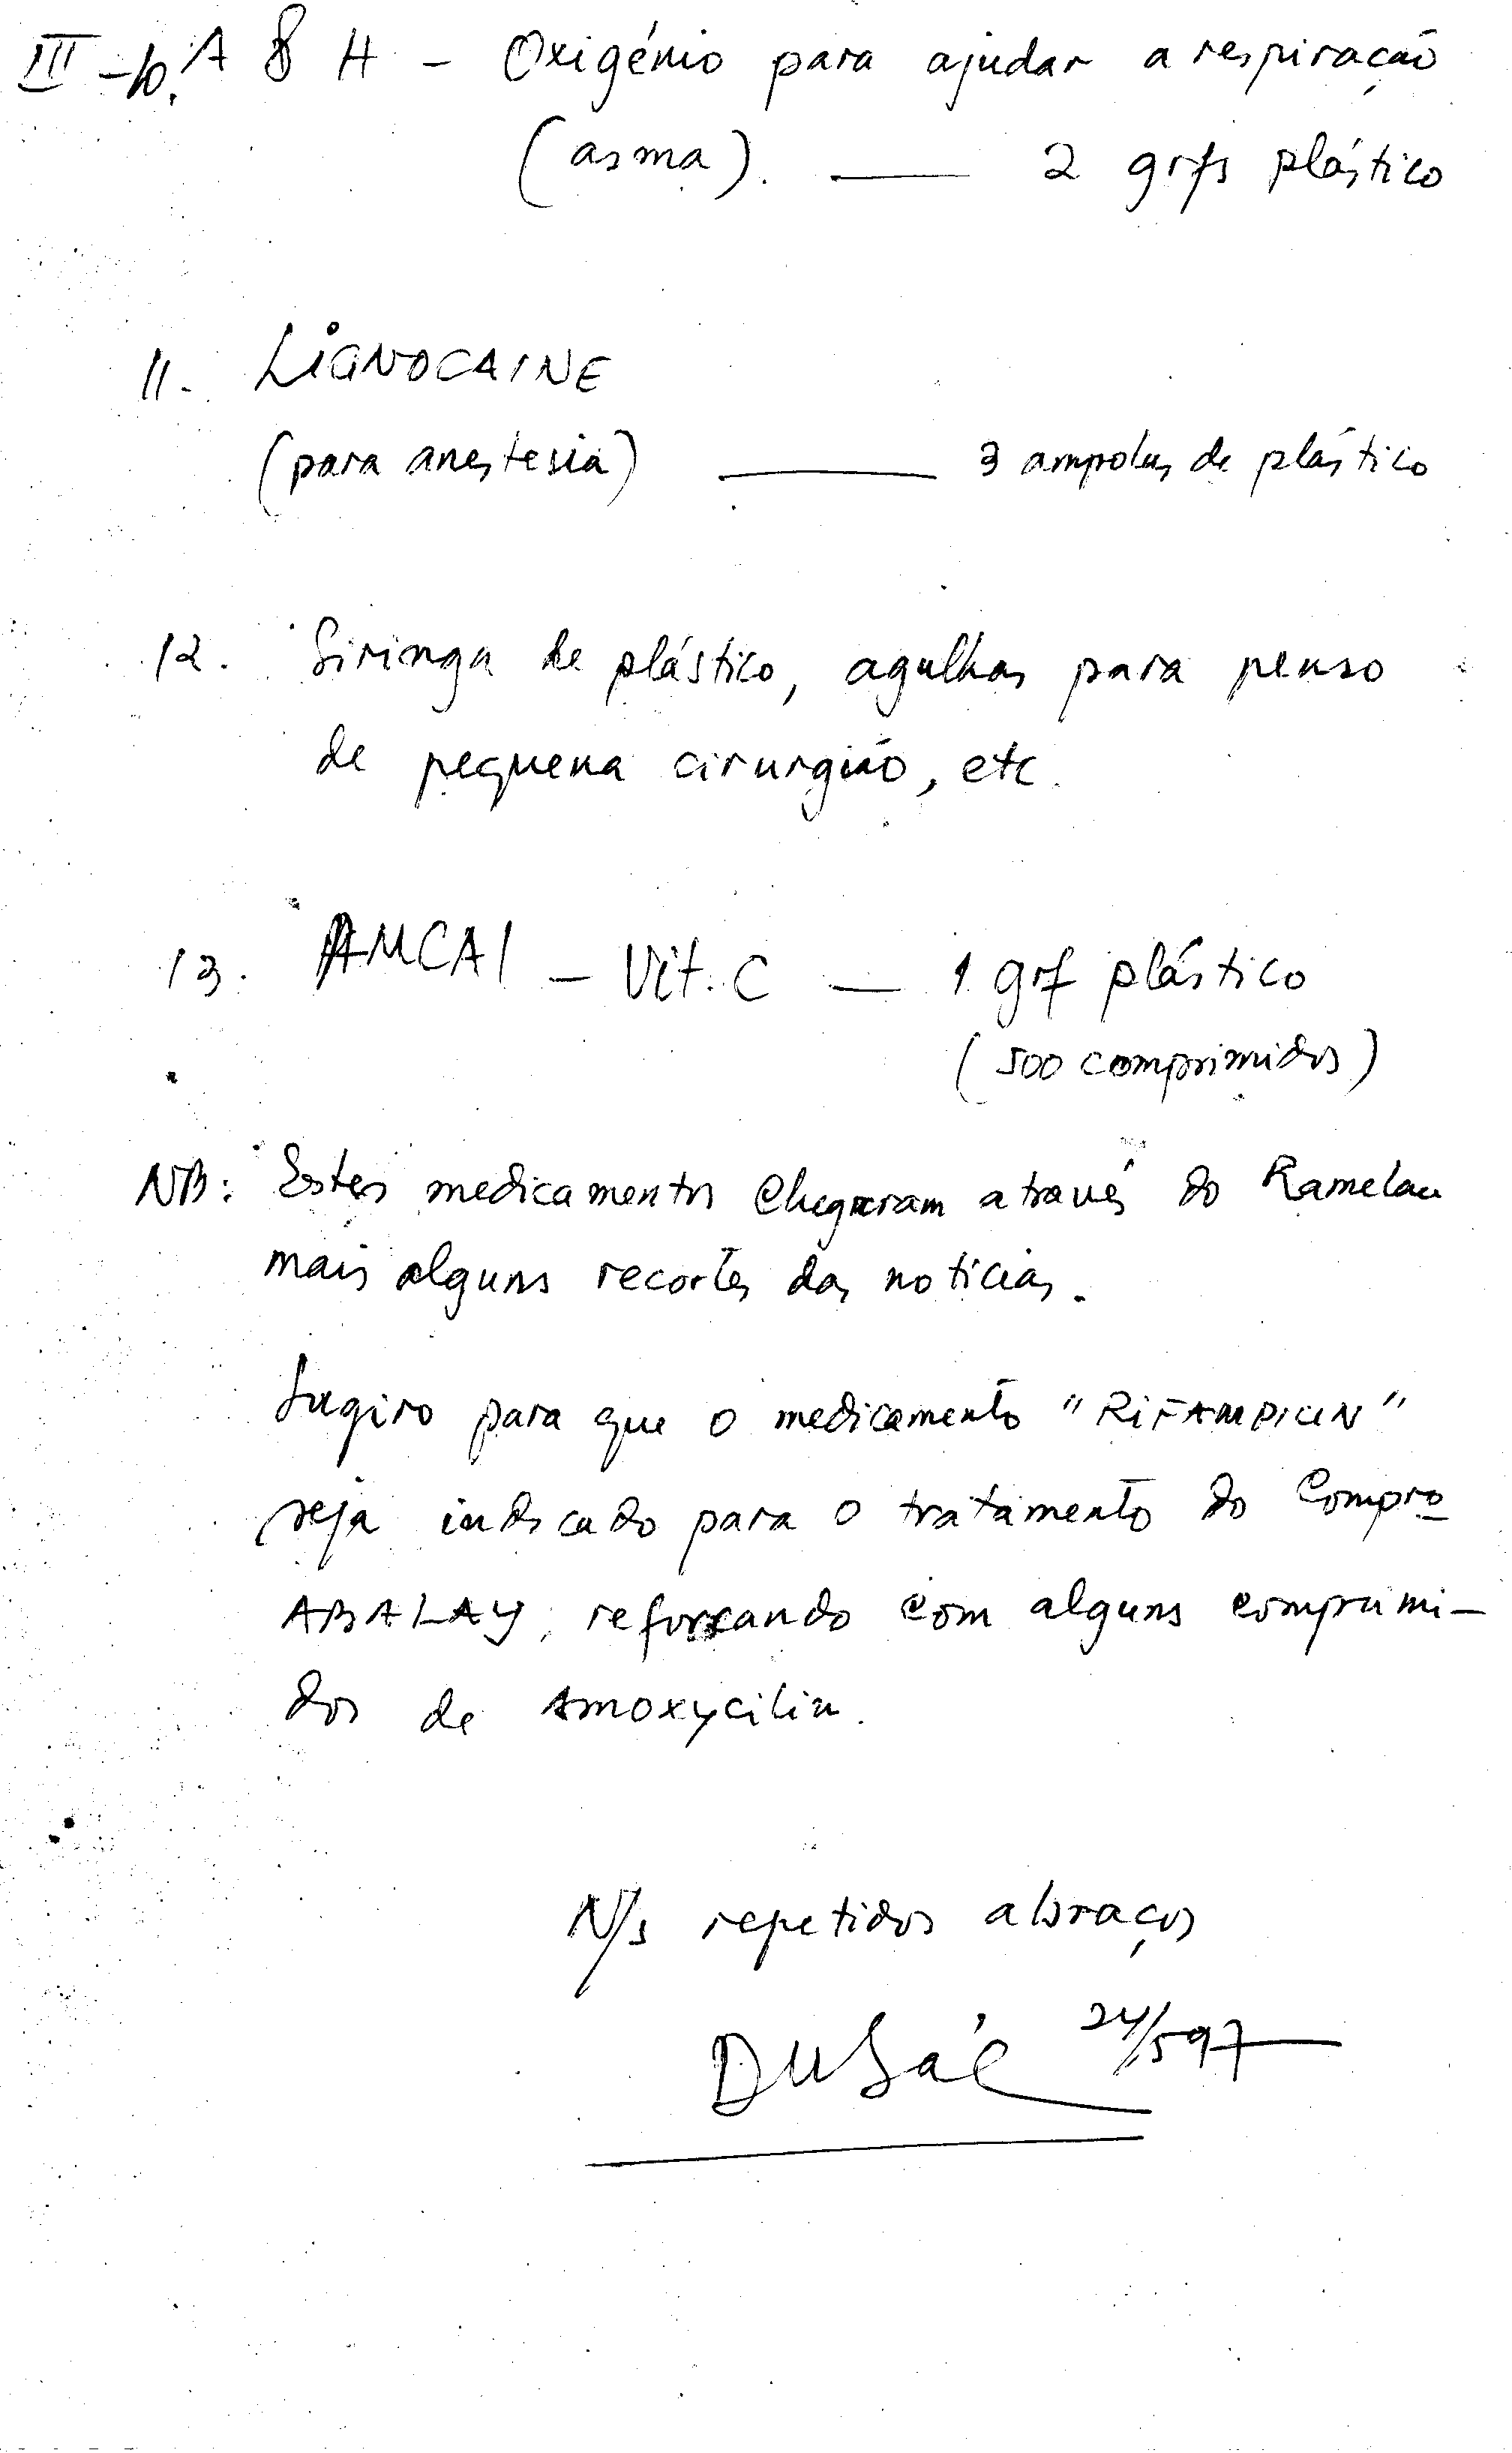 III - 10. A 8 H - Oxigénio para ajudar a respiração
(asma). — 2 grfs plástico
11. LIGNOCAINE
(para anestesia) — 3 ampolas de plástico
12. Siringa de plástico, agulhas para penso
de pequena cirurgião, etc.
13. AMCAI - Vit. C — 1 grf plástico
(500 comprimidos)
NB: Estes medicamentos chegaram através do Ramelau
mais alguns recortes das noticias.
Sugiro para que o medicamento "RIFAMPICIN"
seja indicado para o tratamento do Compro
ABALAY, reforçando com alguns comprimi-
dos de Amoxycilin.
N/s repetidos abraços
24/597